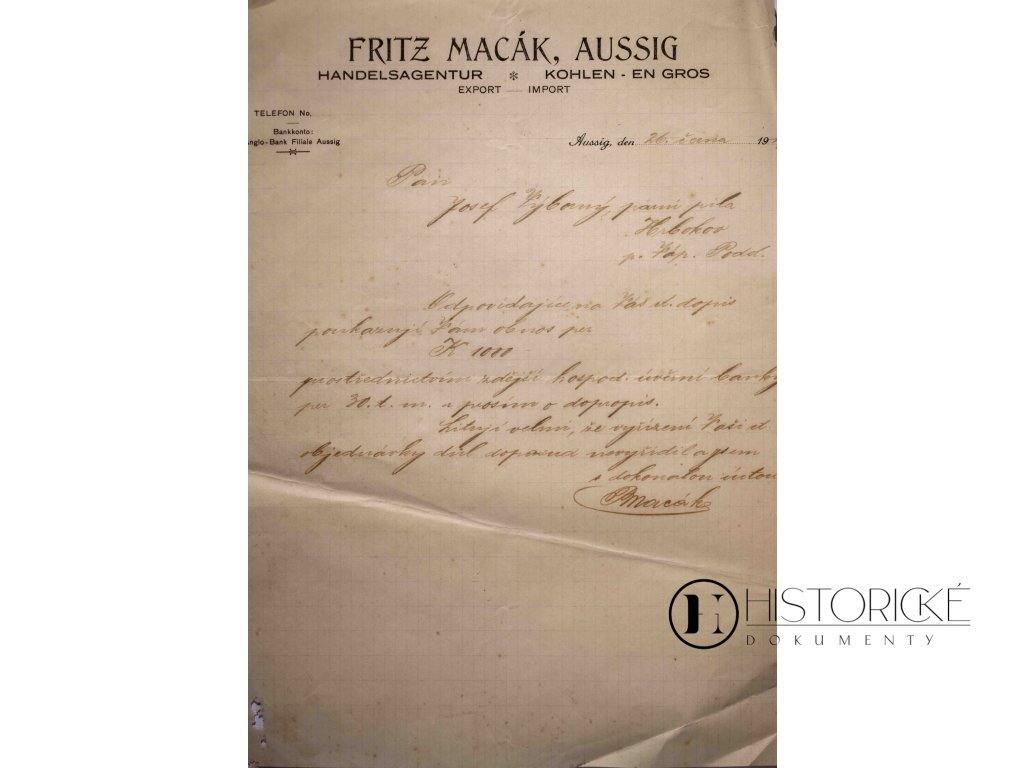 FRITZ MACÁK, AUSSIG
HANDELSAGENTUR ✻ KOHLEN - EN GROS
EXPORT — IMPORT
TELEFON No.
Bankkonto:
Anglo-Bank Filiale Aussig
Aussig, den 26. června 19
Pan
Josef Výborný, parní pila
Hrbokov
p. Váp. Podol.
Odpovídajíce na Váš ct. dopis
poukazuji Vám obnos per
K 1000 -
prostřednictvím zdejší hospod. úvěrní banky
per 30. t. m. a prosím o dopropis.
Lituji velmi, že vyřízení Vaší ct.
objednávky doposud nevyřídil a jsem
s dokonalou úctou
Macák
HISTORICKÉ
DOKUMENTY